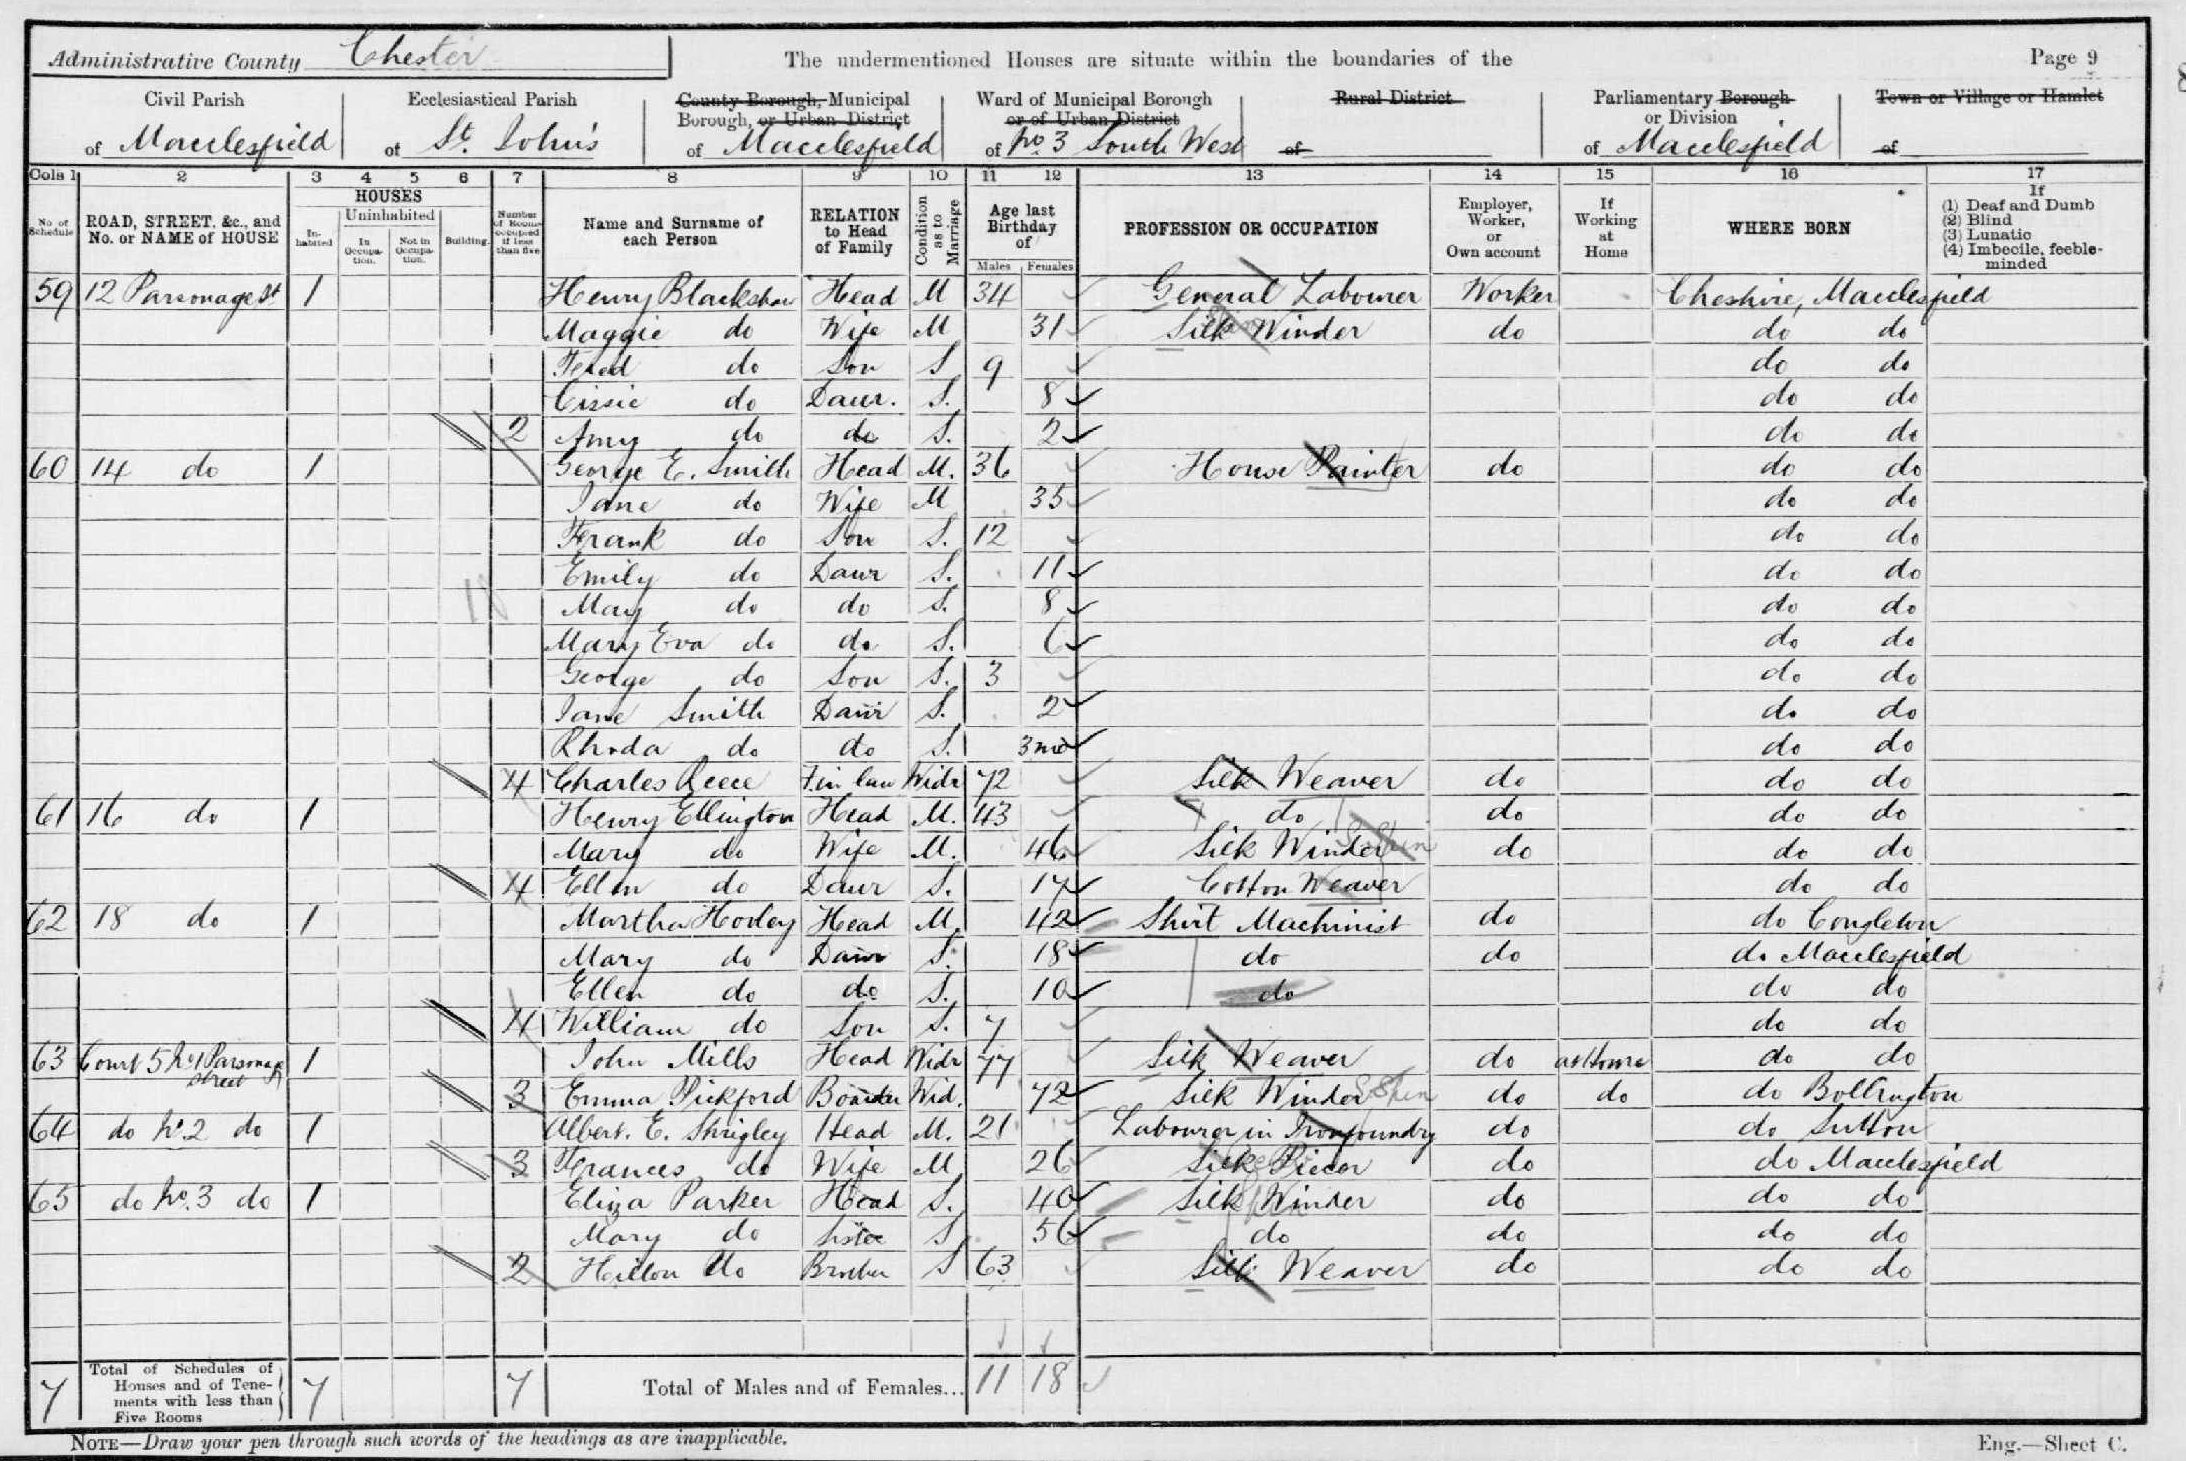 Administrative County Chester
The undermentioned Houses are situate within the boundaries of the
Page 9
Civil Parish of Macclesfield
Ecclesiastical Parish of St. John's
County Borough, Municipal Borough, or Urban District of Macclesfield
Ward of Municipal Borough or of Urban District of No. 3 South West
Rural District of
Parliamentary Borough or Division of Macclesfield
Town or Village or Hamlet of
Cols 1 2 3 4 5 6 7 8 9 10 11 12 13 14 15 16 17
No. of Schedule
ROAD, STREET, &c., and No. or NAME of HOUSE
HOUSES
Inhabited
Uninhabited
In Occupation.
Not in Occupation.
Building.
Number of Rooms occupied if less than five
Name and Surname of each Person
RELATION to Head of Family
Condition as to Marriage
Age last Birthday of
Males Females
PROFESSION OR OCCUPATION
Employer, Worker, or Own account
If Working at Home
WHERE BORN
If
(1) Deaf and Dumb
(2) Blind
(3) Lunatic
(4) Imbecile, feeble-minded
59 12 Parsonage St 1 Henry Blackshaw Head M 34 General Labourer Worker Cheshire, Macclesfield
Maggie do Wife M 31 Silk Winder do do do
Fred do Son S 9 do do
Cissie do Daur. S. 8 do do
2 Amy do do S. 2 do do
60 14 do 1 George E. Smith Head M. 36 House Painter do do do
Jane do Wife M 35 do do
Frank do Son S. 12 do do
Emily do Daur S. 11 do do
May do do S. 8 do do
Mary Eva do do S. 6 do do
George do Son S. 3 do do
Jane Smith Daur S. 2 do do
Rhoda do do S. 3 mo do do
4 Charles Reece F in law Widr 72 Silk Weaver do do do
61 16 do 1 Henry Ellington Head M. 43 do do do do
Mary do Wife M. 46 Silk Winder do do do
4 Ellen do Daur S. 17 Cotton Weaver do do
62 18 do 1 Martha Hovley Head M. 42 Shirt Machinist do do Congleton
Mary do Daur S. 18 do do do Macclesfield
Ellen do do S. 10 do do do
4 William do Son S. 7 do do
63 Court 5 No 1 Parsonage Street 1 John Mills Head Widr 77 Silk Weaver do at Home do do
3 Emma Pickford Boarder Wid. 72 Silk Winder do do do Bollington
64 do No. 2 do 1 Albert. E. Shrigley Head M. 21 Labourer in Ironfoundry do do Sutton
3 Frances do Wife M 26 Silk Piecer do do Macclesfield
65 do No. 3 do 1 Eliza Parker Head S. 40 Silk Winder do do do
Mary do Sister S 56 do do do do
2 do Brother S 63 Silk Weaver do do do
7 Total of Schedules of Houses and of Tenements with less than Five Rooms 7 7 Total of Males and of Females... 11 18
NOTE—Draw your pen through such words of the headings as are inapplicable.
Eng.—Sheet C.